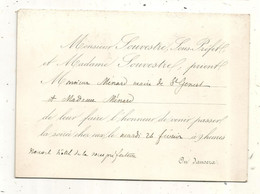 Monsieur Souvestre, Sous Préfet
et Madame Souvestre, prient
Monsieur Ménard maire de St
et Madame Ménard
de leur faire l'honneur de venir passer
la soirée chez eux le mardi 24 février à 9 heures
hôtel de la sous préfecture
On dansera